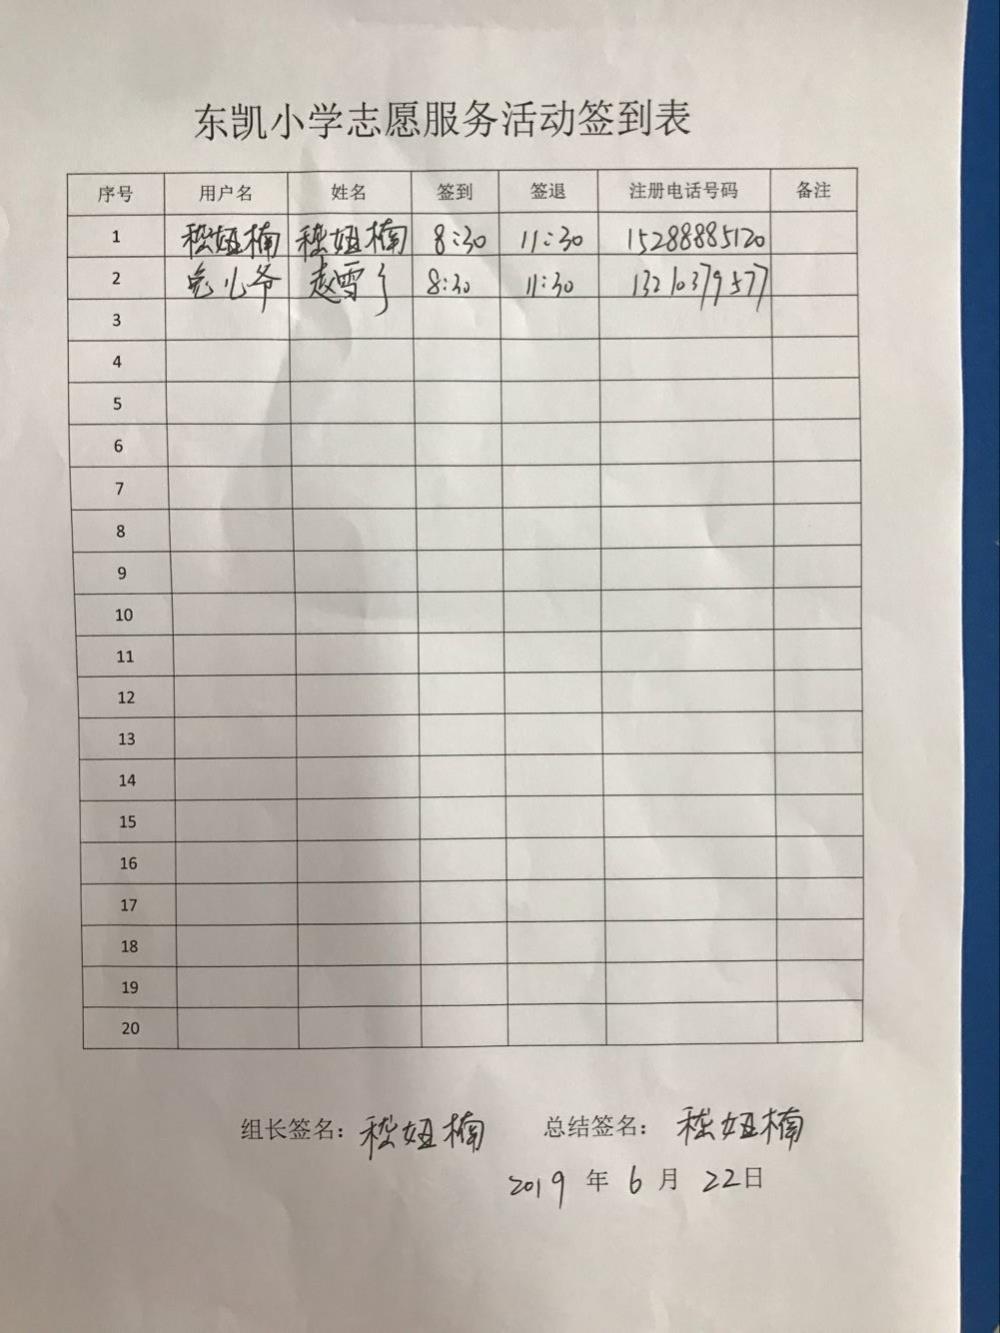 东凯小学志愿服务活动签到表
序号 用户名 姓名 签到 签退 注册电话号码 备注
1 嵇妞楠 嵇妞楠 8:30 11:30 15288885120
2 兔儿爷 赵雪 8:30 11:30 13210379577
3
4
5
6
7
8
9
10
11
12
13
14
15
16
17
18
19
20
组长签名：嵇妞楠 总结签名：嵇妞楠
2019 年 6 月 22日